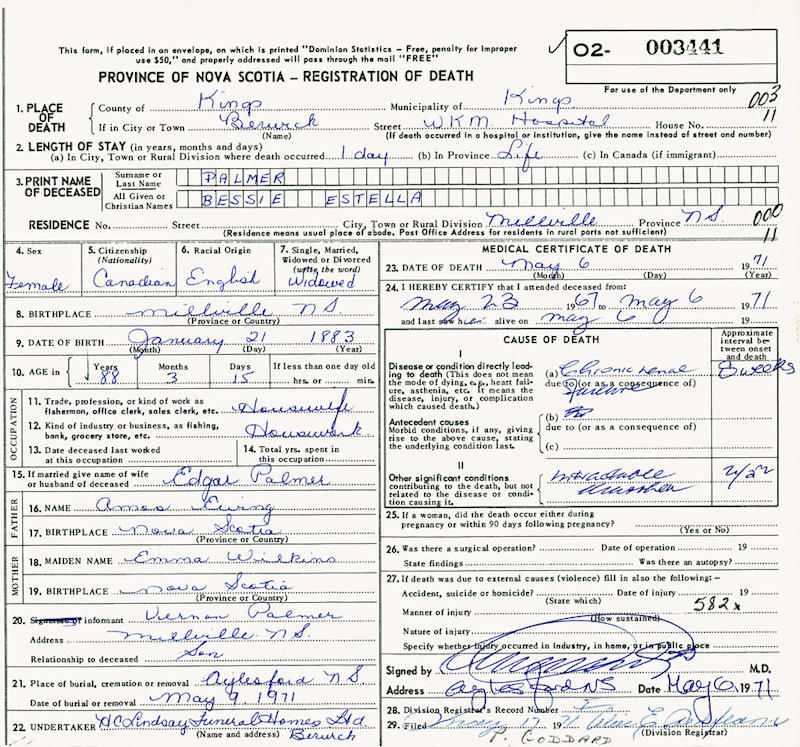 This form, if placed in an envelope, on which is printed "Dominion Statistics – Free, penalty for improper
use $50," and properly addressed will pass through the mail "FREE"
O2- 003441
PROVINCE OF NOVA SCOTIA – REGISTRATION OF DEATH
For use of the Department only
003
11
1. PLACE OF DEATH County of Kings Municipality of Kings
If in City or Town Berwick Street WKM Hospital House No.
(Name) (If death occurred in a hospital or institution, give the name instead of street and number)
2. LENGTH OF STAY (in years, months and days)
(a) In City, Town or Rural Division where death occurred 1 day (b) In Province Life (c) In Canada (if immigrant)
3. PRINT NAME OF DECEASED Surname or Last Name PALMER
All Given or Christian Names BESSIE ESTELLA
RESIDENCE No. Street City, Town or Rural Division Millville Province N.S. 000
(Residence means usual place of abode. Post Office Address for residents in rural parts not sufficient) 11
4. Sex Female
5. Citizenship (Nationality) Canadian
6. Racial Origin English
7. Single, Married, Widowed or Divorced (write the word) Widowed
8. BIRTHPLACE Millville N.S.
(Province or Country)
9. DATE OF BIRTH January 21 1883
(Month) (Day) (Year)
10. AGE in Years 88 Months 3 Days 15 If less than one day old hrs. or min.
OCCUPATION
11. Trade, profession, or kind of work as fishermon, office clerk, sales clerk, etc. Housewife
12. Kind of industry or business, as fishing, bank, grocery store, etc. Housework
13. Date deceased last worked at this occupation
14. Total yrs. spent in this occupation
15. If married give name of wife or husband of deceased Edgar Palmer
FATHER
16. NAME Amos Ewing
17. BIRTHPLACE Nova Scotia
(Province or Country)
MOTHER
18. MAIDEN NAME Emma Wilkins
19. BIRTHPLACE Nova Scotia
(Province or Country)
20. Signature of informant Vernon Palmer
Address Millville N.S.
Relationship to deceased Son
21. Place of burial, cremation or removal Aylesford N.S.
Date of burial or removal May 9 1971
22. UNDERTAKER H.C. Lindsay Funeral Homes Ltd
(Name and address) Berwick
MEDICAL CERTIFICATE OF DEATH
23. DATE OF DEATH May 6 1971
(Month) (Day) (Year)
24. I HEREBY CERTIFY that I attended deceased from:
May 23 1967 to May 6 1971
and last saw her alive on May 6 19
CAUSE OF DEATH
Approximate interval between onset and death
I
Disease or condition directly leading to death (This does not mean the mode of dying, e.g., heart failure, asthenia, etc. It means the disease, injury, or complication which caused death.)
(a) Chronic renal 3 weeks
due to (or as a consequence of)
failure
Antecedent causes
Morbid conditions, if any, giving rise to the above cause, stating the underlying condition last.
(b)
due to (or as a consequence of)
(c)
II
Other significant conditions contributing to the death, but not related to the disease or condition causing it.
25. If a woman, did the death occur either during pregnancy or within 90 days following pregnancy?
(Yes or No)
26. Was there a surgical operation? Date of operation 19
State findings Was there an autopsy?
27. If death was due to external causes (violence) fill in also the following:–
Accident, suicide or homicide? Date of injury 19
(State which) 582x
Manner of injury
(How sustained)
Nature of injury
Specify whether injury occurred in industry, in home, or in public place
Signed by M.D.
Address Aylesford NS Date May 6 1971
28. Division Registrar's Record Number
29. Filed May 17 1971
(Division Registrar)
P. GODDARD